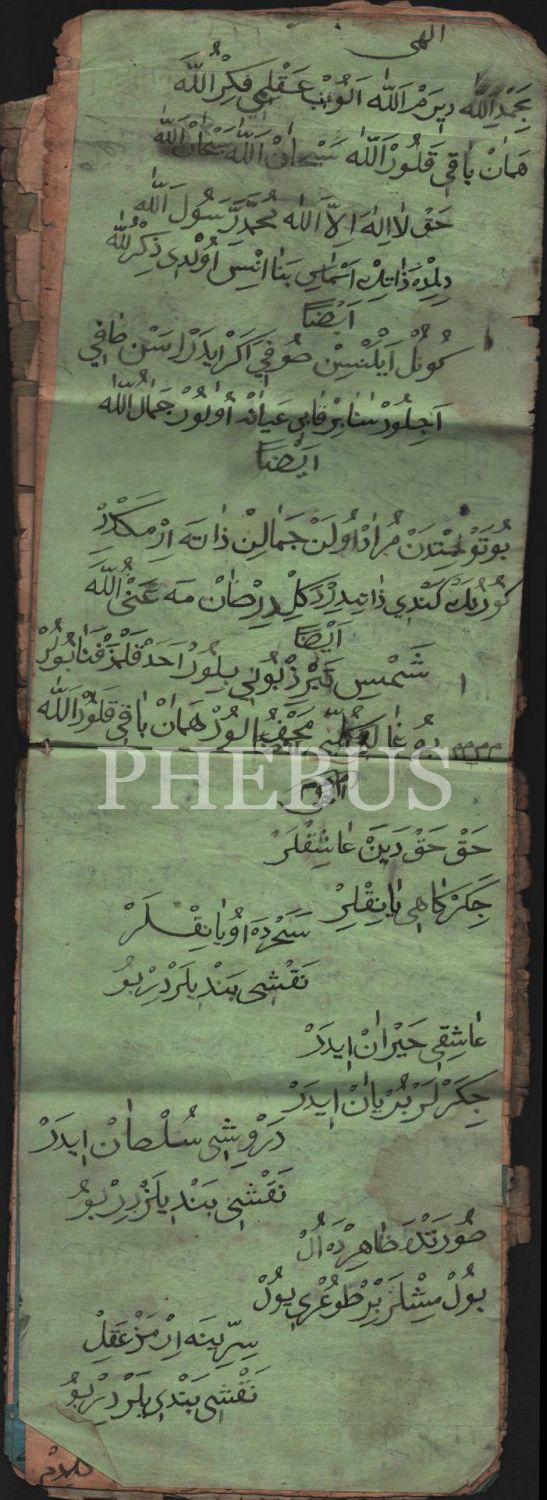 الهى
بِحَمْدِ اللّٰه دِيرَمْ اَللّٰه اَلُوْبْ عَقْلِمِى فِكِرُ اللّٰه
هَمَانْ بَاقِى قَلُورْ اَللّٰه سُبْحَانْ اَللّٰه سُبْحَانْ اَللّٰه
حَقْ لَا اِلٰهَ اِلَّا اَللّٰه مُحَمَّدْ رَسُولَ اَللّٰه
دِلِمْدَه ذَاتِكْ اَسْمَاسِى بَنَا اَنِيسْ اُولْدِى ذِكْرُ اللّٰه
اَيْضًا
كُوكُلْ اَيْلَنْسِينْ صُوفِى اَكَرْ اِيدَرْسَنْ صَافِى
اَچِلُورْ سَنَا بِرْ قَاپِى عَيَانْدَه اُولُورْ جَمَالُ اللّٰه
اَيْضًا
بُو تَوْحِيدْدَنْ مُرَادْ اُولَنْ جَمَالِنْ ذَاتَه اِرْمَكْدِرْ
كُورُنَنْ كَنْدِى ذَاتِيدِرْ دَكِلْدِرْ صَانْمَه غَيْرُ اللّٰه
اَيْضًا
شَمْسِ تَبْرِزْ بُونِى بِلُورْ اَحَدْ قَلْمَزْ فَنَا بُولُرْ
بُو عَالَمْ كُلِّى مَحْوْ اُلُورْ هَمَانْ بَاقِى قَلُورْ اَللّٰه
PHEBUS
الهى
حَقْ حَقْ دَيَنْ عَاشِقْلَرْ
جِكَرْكَاهِى يَانِقْلَرْ
سَحَرْدَه اُويَانِقْلَرْ
نَقْشِى بَنْدِيلَرْدِرْ بُو
عَاشِقِى حَيْرَانْ اِيدَرْ
جِكَرْلَرْ بُرْيَانْ اِيدَرْ
دَرْوِيشِى سُلْطَانْ اِيدَرْ
نَقْشِى بَنْدِيلَرْدِرْ بُو
صُورَتْدَه ظَاهِرْدَه اُلْ
بُولْمِشْلَرْ بِرْ طُوغْرِى يُولْ
سِرِّينَه اِرْمَزْ عَقِلْ
نَقْشِى بَنْدِيلَرْدِرْ بُو